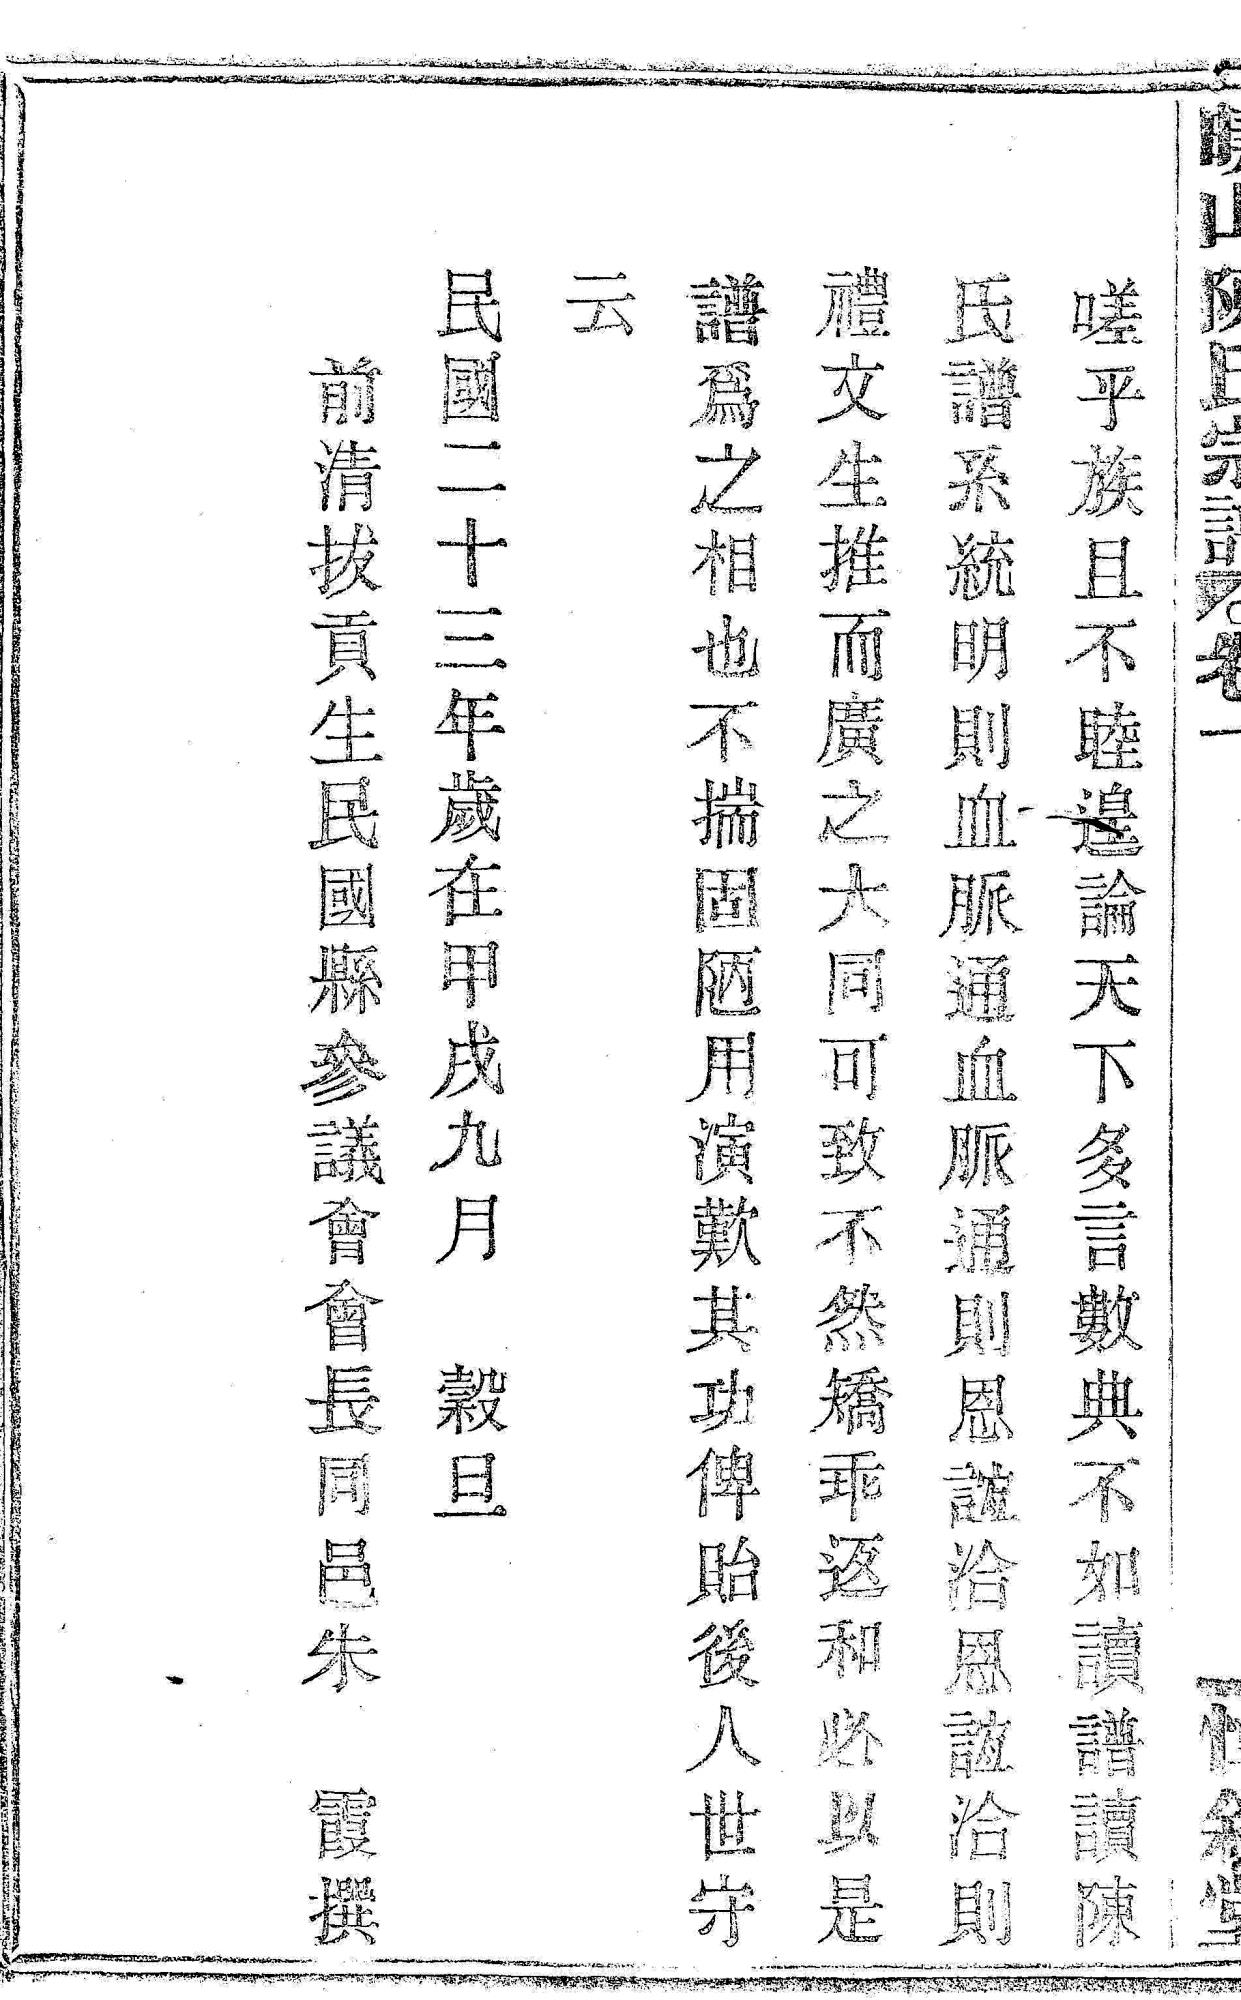 山陳氏宗譜 卷一
嗟乎族且不睦遑論天下多言數典不如讀譜讀陳
氏譜系統明則血脈通血脈通則恩誼洽恩誼洽則
禮文生推而廣之大同可致不然矯乖返和必以是
譜爲之相也不揣固陋用演歎其功俾貽後人世守
云
民國二十三年歲在甲戌九月　穀旦
前清拔貢生民國縣參議會會長同邑朱　霞撰